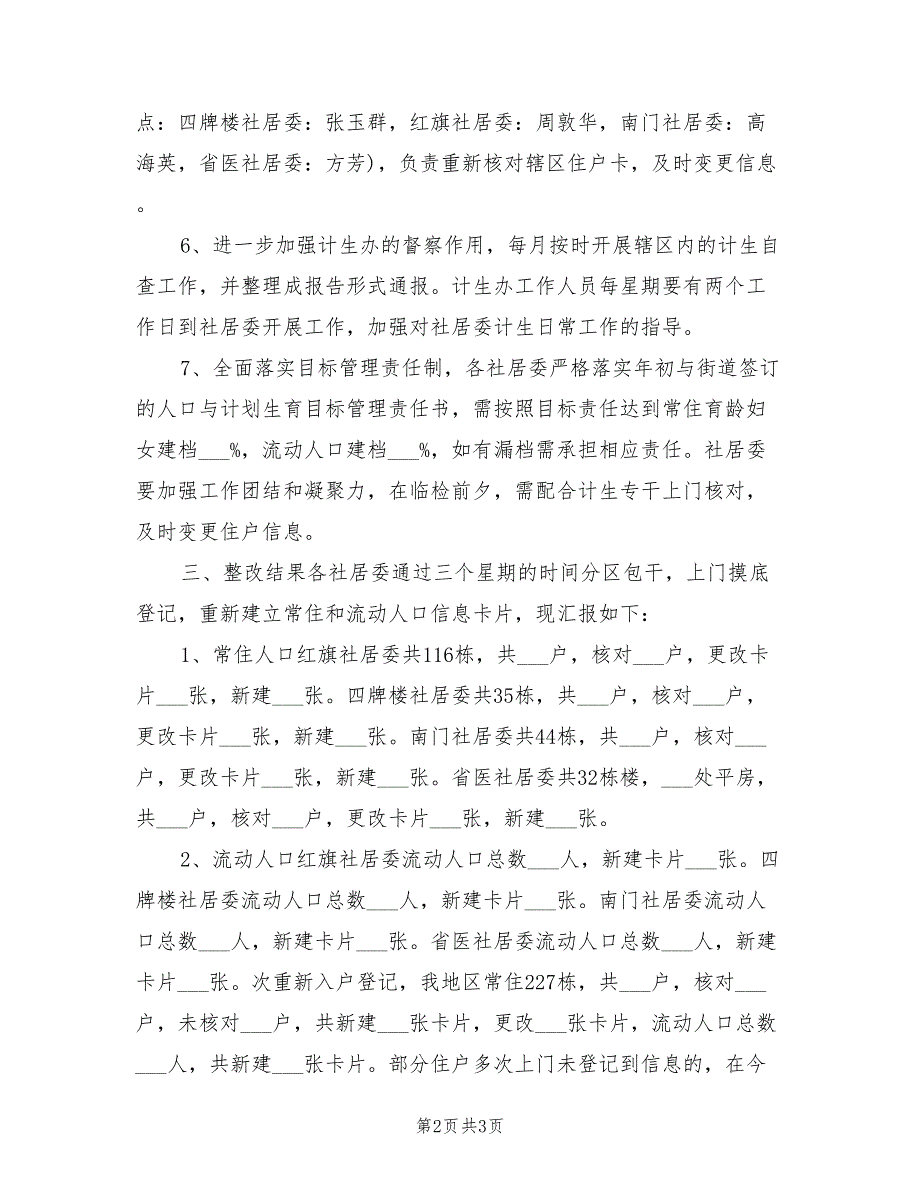 点：四牌楼社居委：张玉群，红旗社居委：周敦华，南门社居委：高
海英，省医社居委：方芳)，负责重新核对辖区住户卡，及时变更信息
。
6、进一步加强计生办的督察作用，每月按时开展辖区内的计生自
查工作，并整理成报告形式通报。计生办工作人员每星期要有两个工
作日到社居委开展工作，加强对社居委计生日常工作的指导。
7、全面落实目标管理责任制，各社居委严格落实年初与街道签订
的人口与计划生育目标管理责任书，需按照目标责任达到常住育龄妇
女建档___%，流动人口建档___%，如有漏档需承担相应责任。社居委
要加强工作团结和凝聚力，在临检前夕，需配合计生专干上门核对，
及时变更住户信息。
三、整改结果各社居委通过三个星期的时间分区包干，上门摸底
登记，重新建立常住和流动人口信息卡片，现汇报如下：
1、常住人口红旗社居委共116栋，共___户，核对___户，更改卡
片___张，新建___张。四牌楼社居委共35栋，共___户，核对___户，
更改卡片___张，新建___张。南门社居委共44栋，共___户，核对___
户，更改卡片___张，新建___张。省医社居委共32栋楼，___处平房，
共___户，核对___户，更改卡片___张，新建___张。
2、流动人口红旗社居委流动人口总数___人，新建卡片___张。四
牌楼社居委流动人口总数___人，新建卡片___张。南门社居委流动人
口总数___人，新建卡片___张。省医社居委流动人口总数___人，新建
卡片___张。次重新入户登记，我地区常住227栋，共___户，核对___
户，未核对___户，共新建___张卡片，更改___张卡片，流动人口总数
___人，共新建___张卡片。部分住户多次上门未登记到信息的，在今
第2页共3页